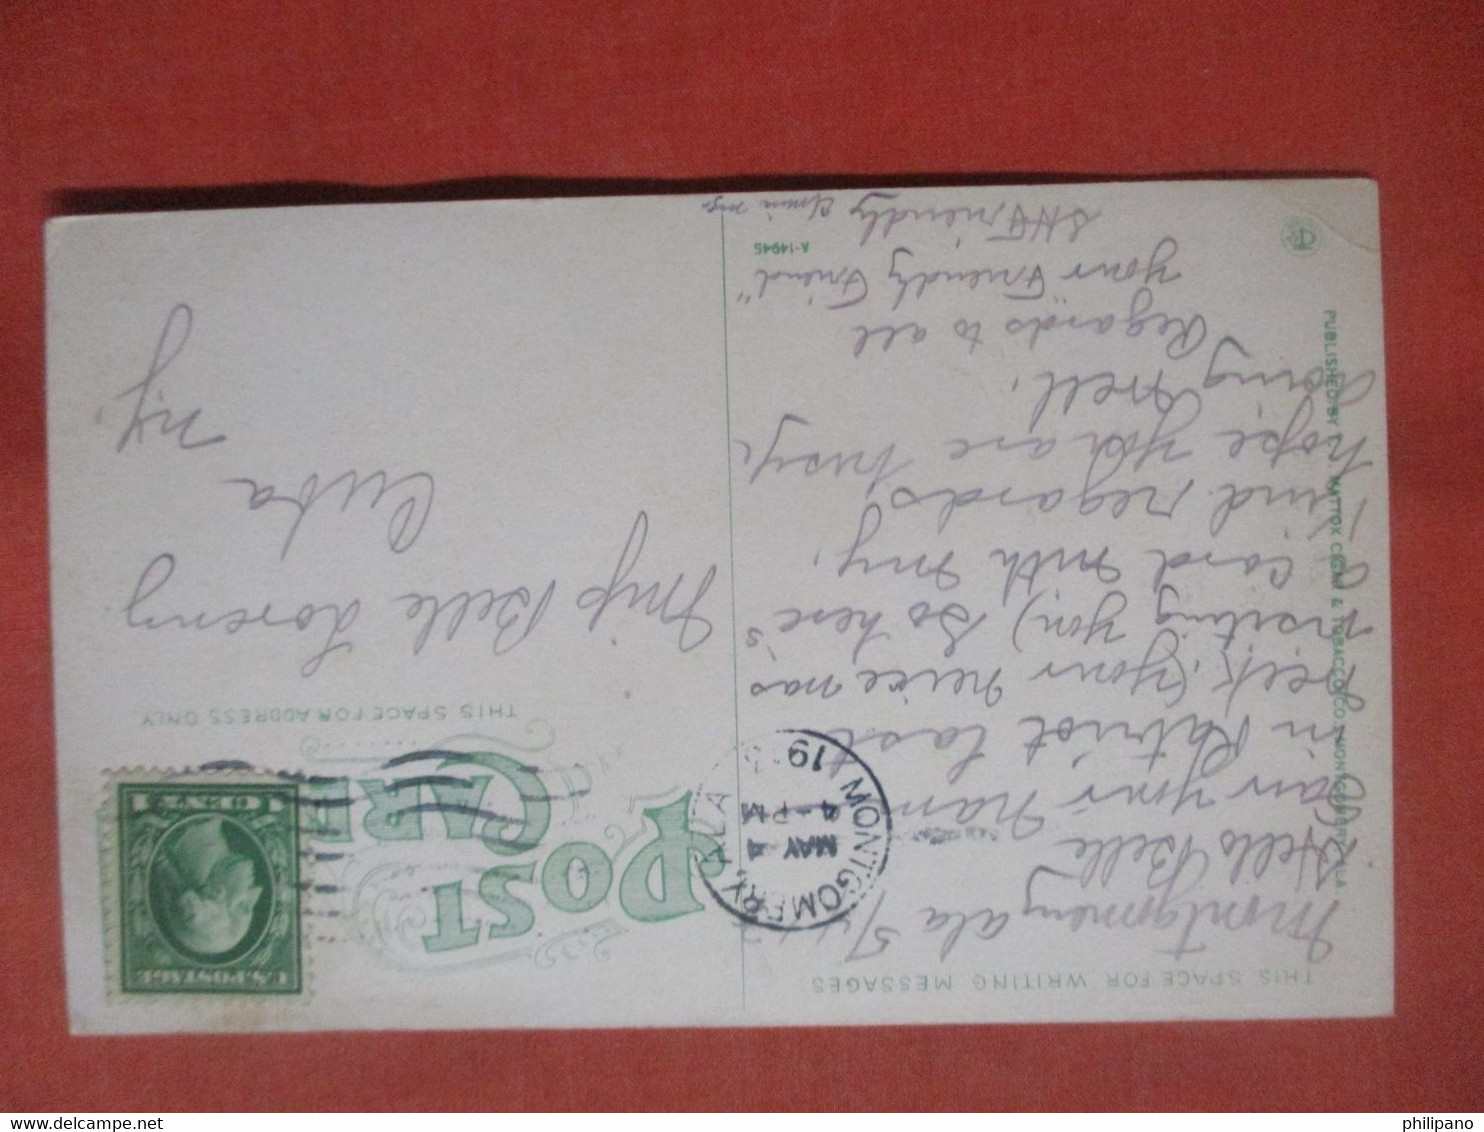 THIS SPACE FOR WRITING MESSAGES
Montgomery ala 5/4
Hello Belle
Saw your name
in Patriot last
week (your neice was
visiting you) So here's
a card with my
kind regards,
hope you are busy.
doing well.
Regards to all
your "Friendly Friend"
Friendly
A-14945
PUBLISHED BY MATTOX CIGAR & TOBACCO CO. MONTGOMERY, ALA
POST
CARD
THIS SPACE FOR ADDRESS ONLY
MONTGOMERY, ALA
MAY 4
4-PM
19
U.S. POSTAGE
1 CENT 1
Miss Belle Loreny
Cuba
NY.
philipano